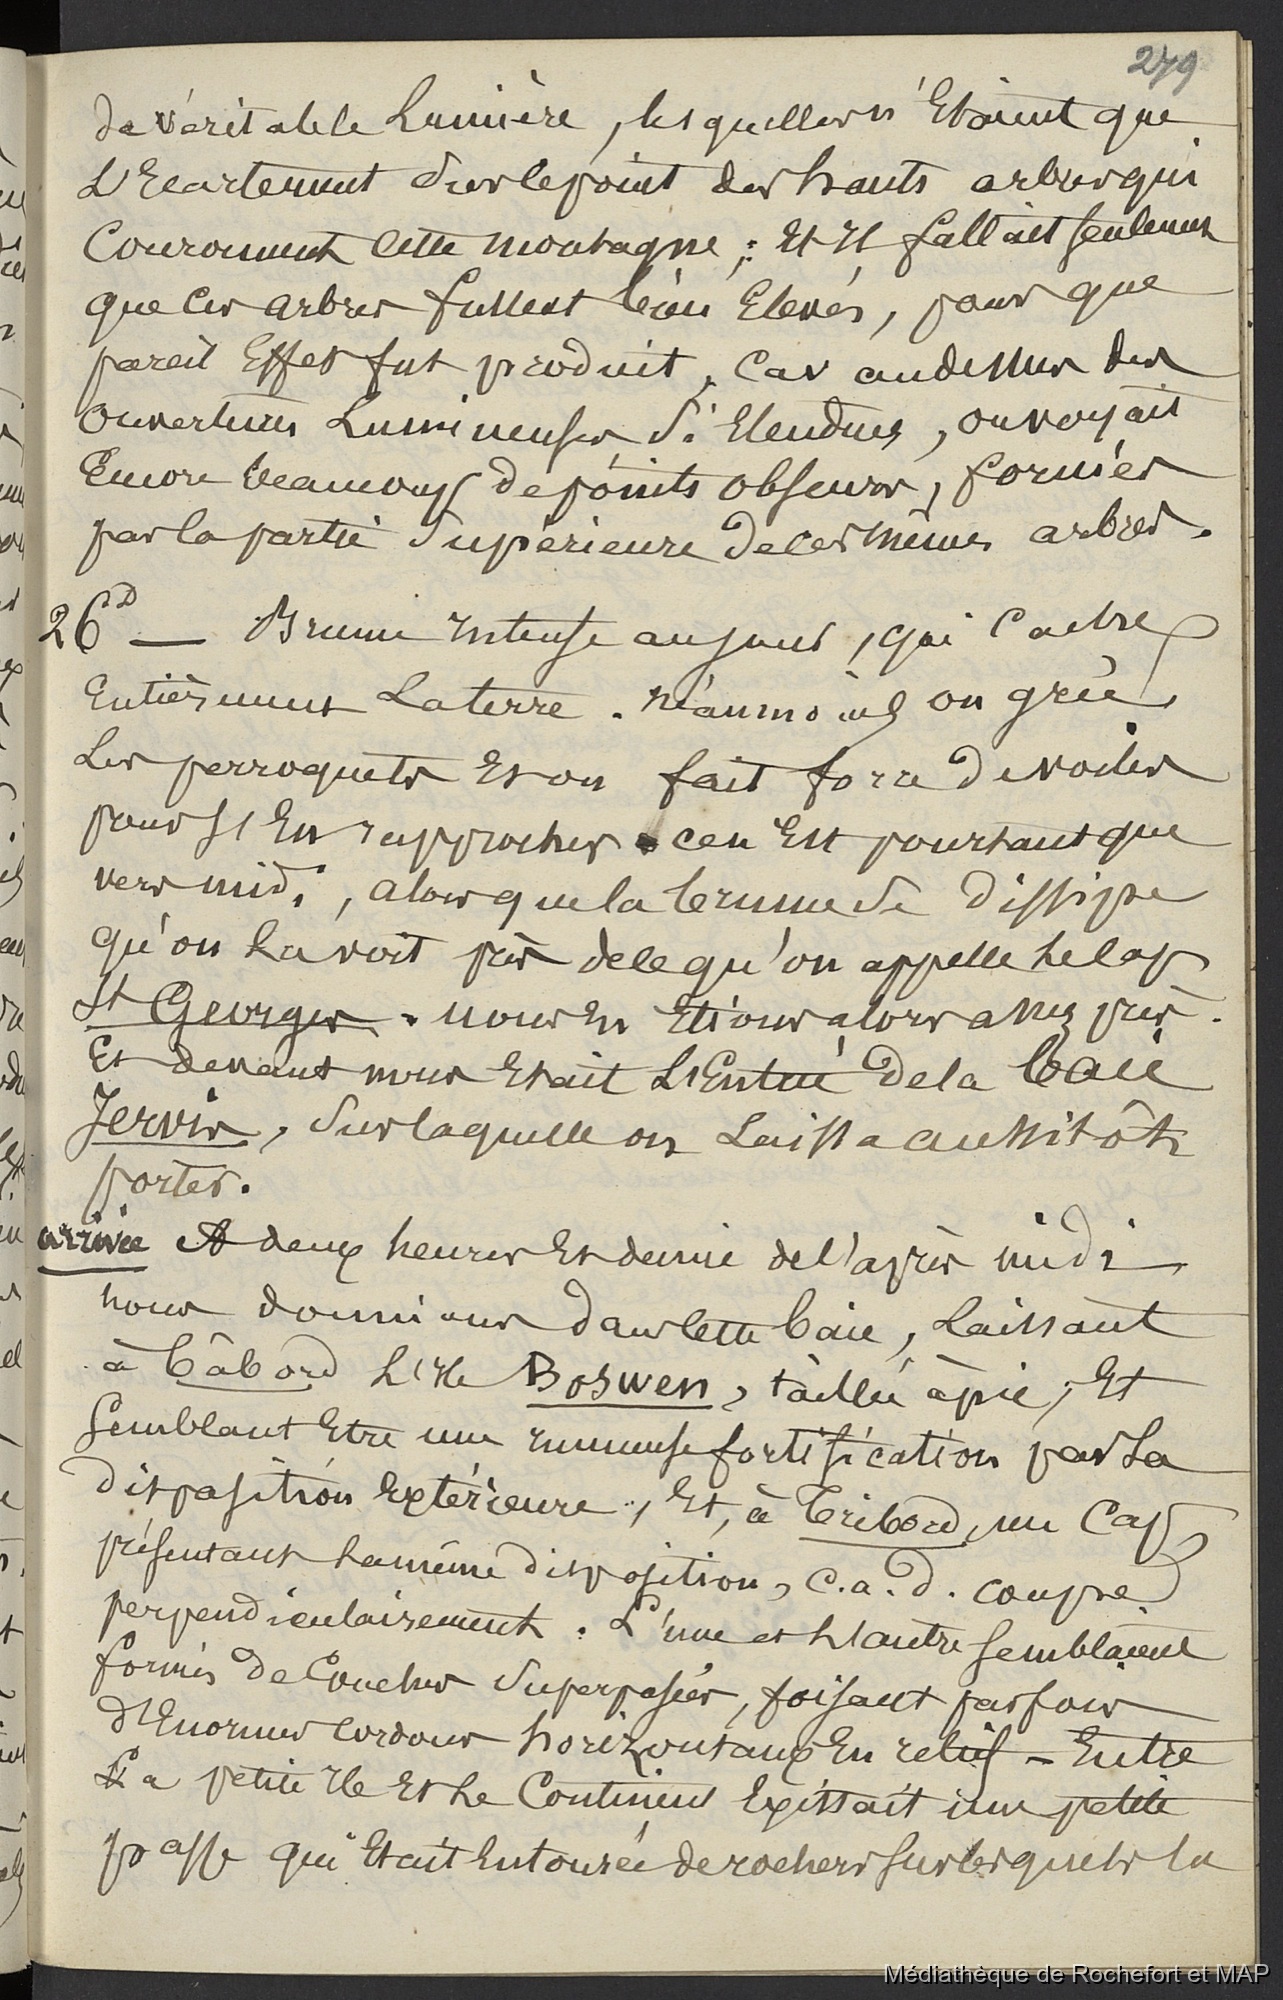 279
de véritable lumière, lesquelles n'Etaient que
L'Ecartement sur le point des hauts arbres qui
Couronnent cette montagne ; Et Il fallait seulement
que ces arbres fussent bien Elevés, pour que
pareil Effet fut produit, car au dessus des
ouvertures Lumineuses si Etendues, on voyait
Encore beaucoup de points obscurs, formés
par la partie supérieure de ces mêmes arbres.
26 D — Brume Intense au jour, qui cache
Entièrement La terre. néanmoins on grée
Les perroquets Et on fait force de voiles
pour s'En rapprocher. ce n'Est pourtant que
vers midi, alors que la brume se dissipe
qu'on la voit près de le qu'on appelle le Cap
St Georges. nous En Etions alors assez près.
Et devant nous Etait L'Entrée de la baie
Jervis, sur laquelle on Laissa aussitôt
porter.
arrivée A deux heures Et demie de l'après midi
nous donnions dans cette baie, Laissant
à bâbord L'Ile Boswen, taillée à pic, Et
semblant Etre une immense fortification par sa
disposition Extérieure, Et, à tribord, un Cap
présentant la même disposition, c.a.d. coupé
perpendiculairement. L'une et L'autre semblaient
formés de Couches superposées, faisant parfois
d'Enormes cordons horizontaux En relief – Entre
La petite Ile Et Le Continent Existait une petite
passe qui Etait Entourée de rochers sur lesquels la
Médiathèque de Rochefort et MAP